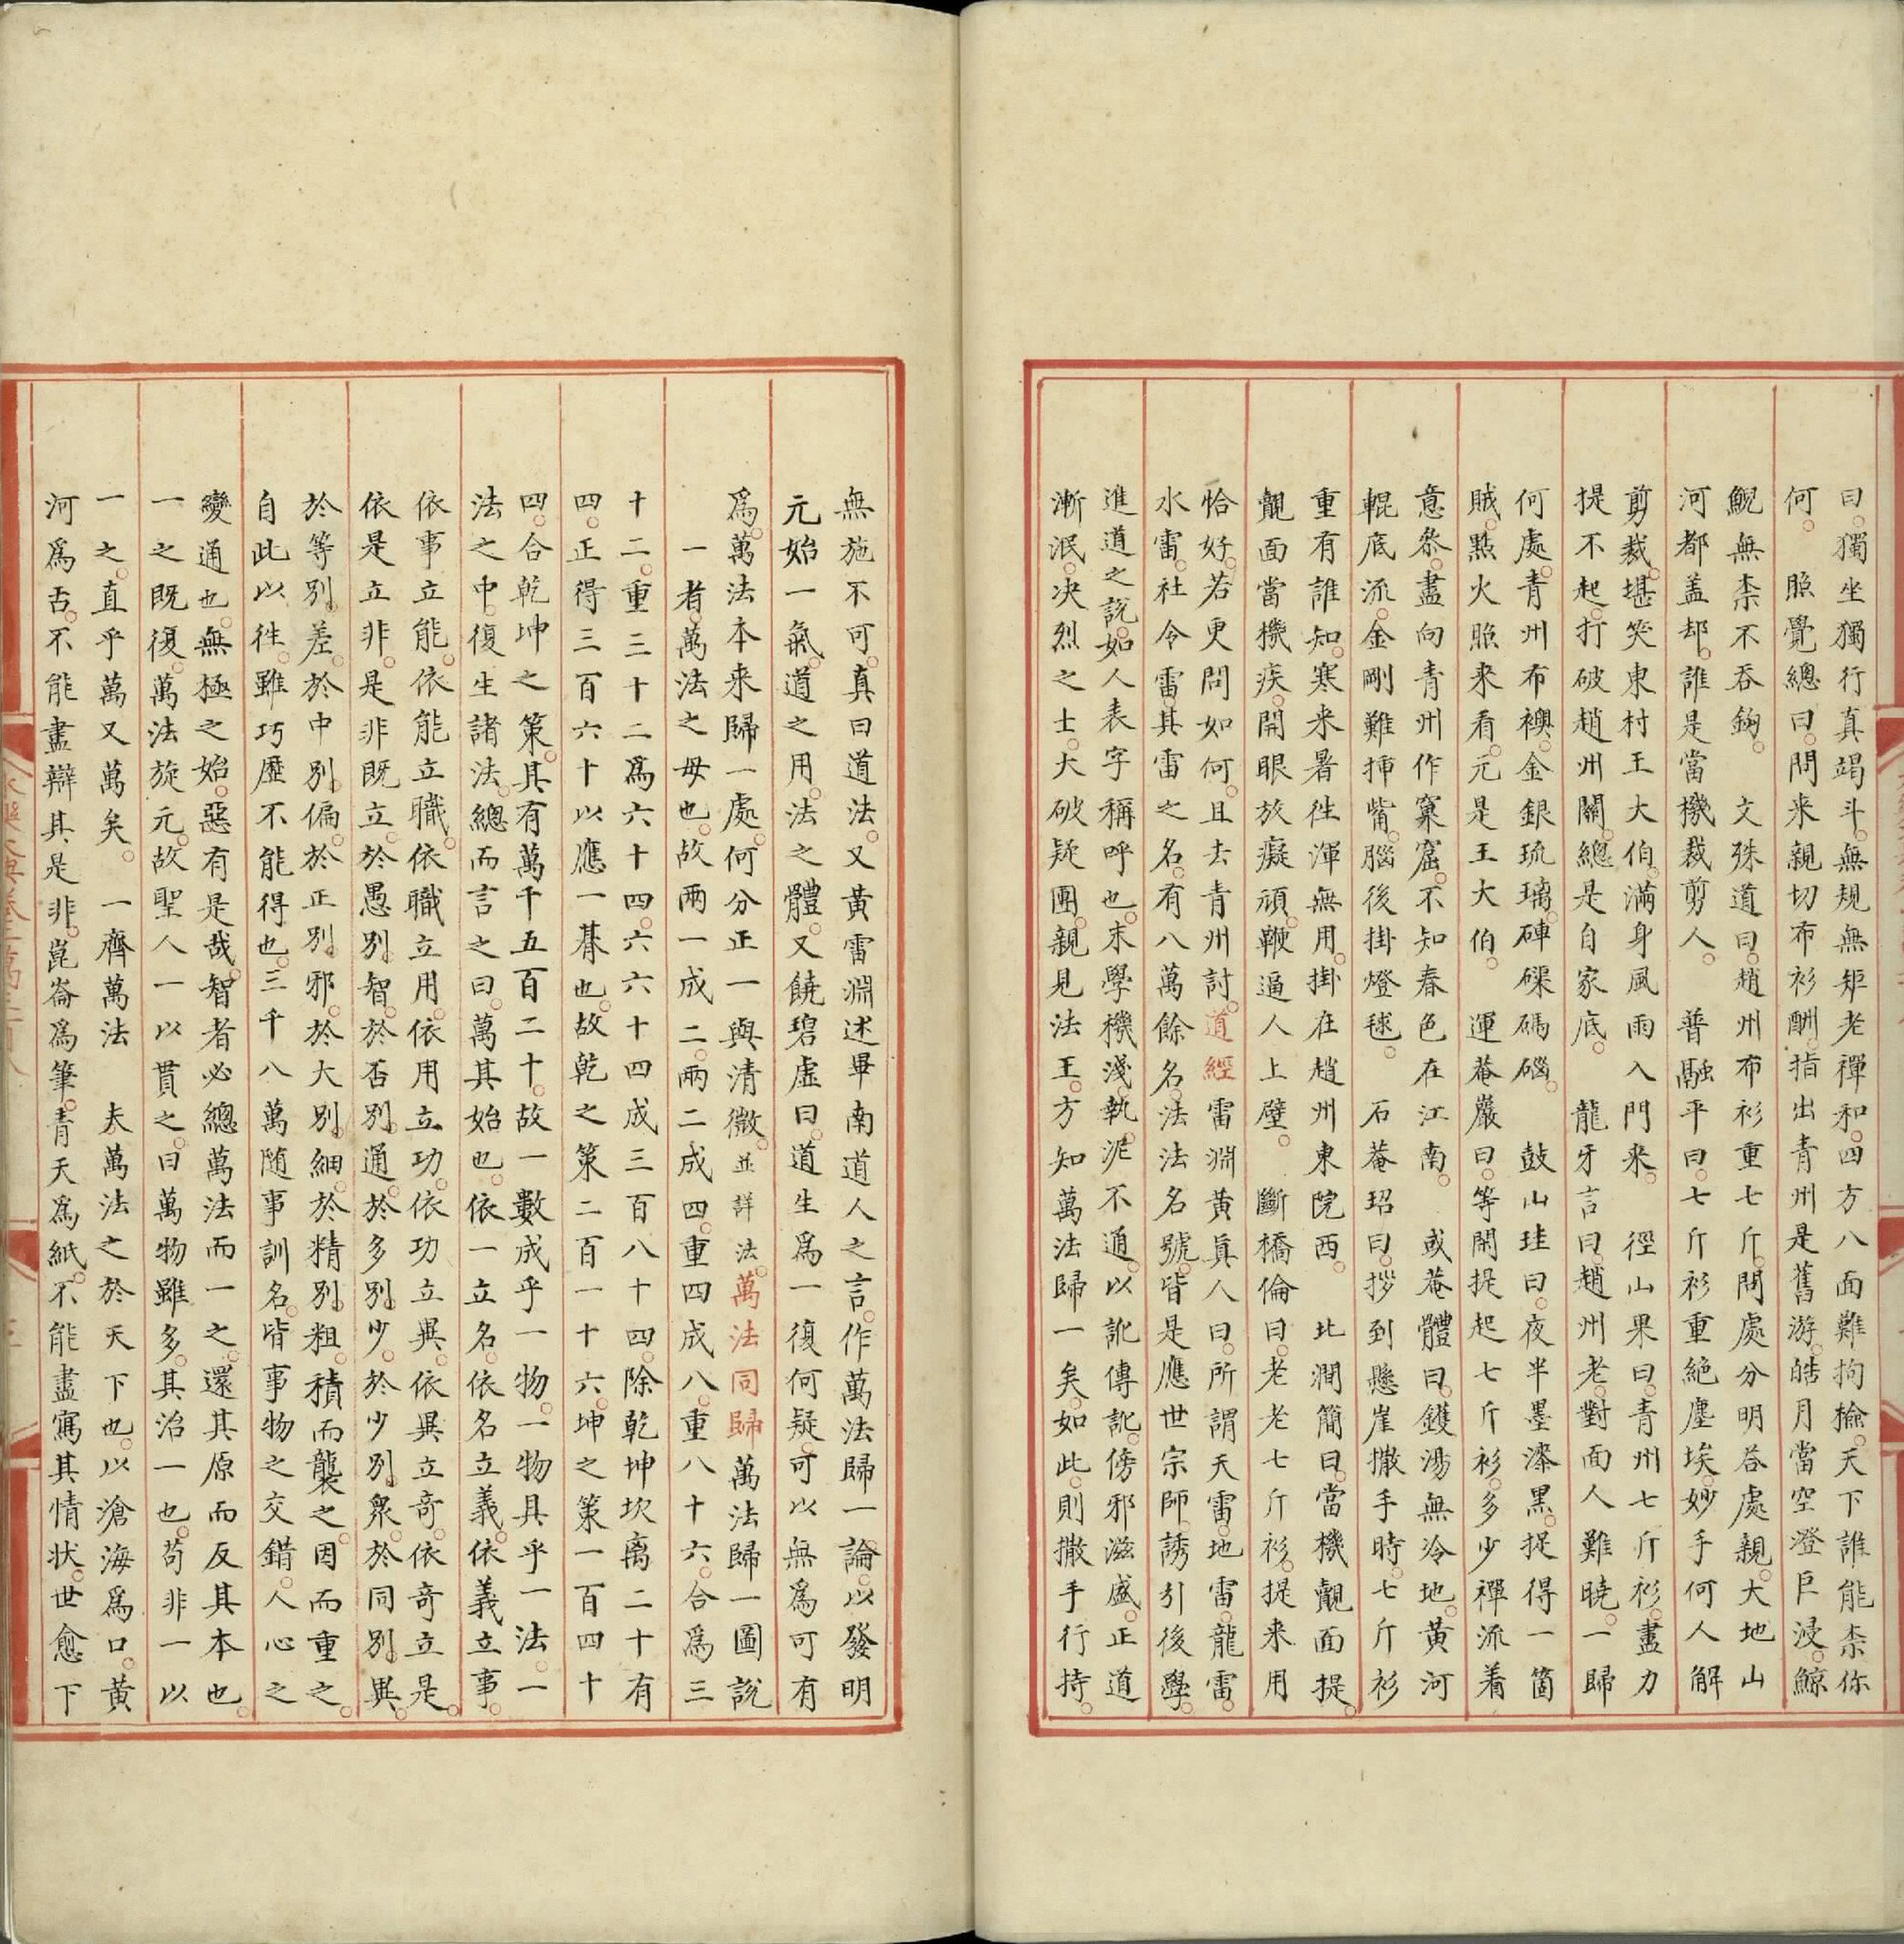 曰獨坐獨行真竭斗無規無矩老禪和四方八面難拘撿天下誰能柰你
何　照覺總曰問来親切布衫酬指出青州是舊游皓月當空澄巨浸鯨
鯢無柰不吞鉤　文殊道曰趙州布衫重七斤問處分明荅處親大地山
河都盖却誰是當機裁剪人　普融平曰七斤衫重絶塵埃妙手何人解
剪裁堪笑東村王大伯滿身風雨入門来　徑山果曰青州七斤衫盡力
提不起打破趙州關總是自家底　龍牙言曰趙州老對面人難曉一歸
何處青州布襖金銀琉璃硨磲碼碯　鼓山珪曰夜半墨漆黑捉得一箇
賊點火照来看元是王大伯　運菴巖曰等閑提起七斤衫多少禪流着
意叅盡向青州作窠窟不知春色在江南　或菴體曰鑊湯無冷地黄河
輥底流金剛難揷觜腦後掛燈毬　石菴玿曰拶到懸崖撒手時七斤衫
重有誰知寒来暑徃渾無用掛在趙州東院西　北澗簡曰當機覿面提
覿面當機疾開眼放癡頑鞭逼人上壁　斷橋倫曰老老七斤衫提来用
恰好若更問如何且去青州討道經雷淵黄真人曰所謂天雷地雷龍雷
水雷社令雷其雷之名有八萬餘名法法名號皆是應世宗師誘引後學
進道之說如人表字稱呼也末學機淺執泥不通以訛傳訛傍邪滋盛正道
漸泯决烈之士大破疑團親見法王方知萬法歸一矣如此則撒手行持
無施不可真曰道法又黄雷淵述畢南道人之言作萬法歸一論以發明
元始一氣道之用法之體又饒碧虛曰道生爲一復何疑可以無爲可有
爲萬法本来歸一處何分正一與清微並詳法萬法同歸萬法歸一圖説
一者萬法之母也故兩一成二兩二成四重四成八重八十六合爲三
十二重三十二爲六十四六六十四成三百八十四除乾坤坎离二十有
四正得三百六十以應一朞也故乾之策二百一十六坤之策一百四十
四合乾坤之策其有萬千五百二十故一數成乎一物一物具乎一法一
法之中復生諸法總而言之曰萬其始也依一立名依名立義依義立事
依事立能依能立職依職立用依用立功依功立異依異立竒依竒立是
依是立非是非既立於愚別智於否別通於多別少於少別衆於同別異
於等別差於中別偏於正別邪於大別細於精別粗積而襲之因而重之
自此以徃雖巧歷不能得也三千八萬随事訓名皆事物之交錯人心之
變通也無極之始惡有是哉智者必總萬法而一之還其原而反其本也
一之既復萬法旋元故聖人一以貫之曰萬物雖多其治一也茍非一以
一之直乎萬又萬矣　一齊萬法　夫萬法之於天下也以滄海爲口黄
河爲舌不能盡辯其是非崑崙爲筆青天爲紙不能盡寫其情状世愈下